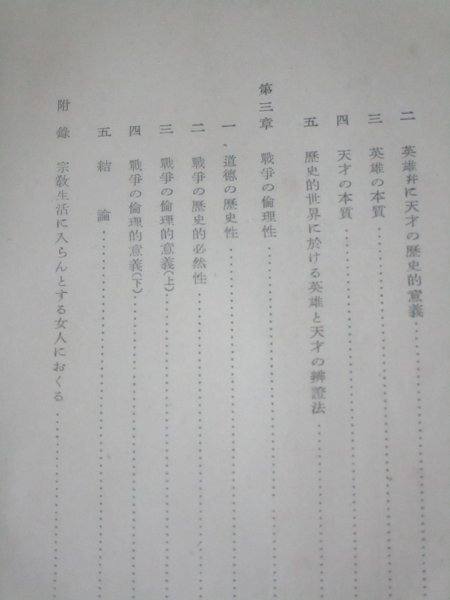 二 英雄幷に天才の歷史的意義
三 英雄の本質
四 天才の本質
五 歷史的世界に於ける英雄と天才の辨證法
第三章 戰爭の倫理性
一 道德の歷史性
二 戰爭の歷史的必然性
三 戰爭の倫理的意義(上)
四 戰爭の倫理的意義(下)
五 結論
附錄 宗敎生活に入らんとする女人におくる